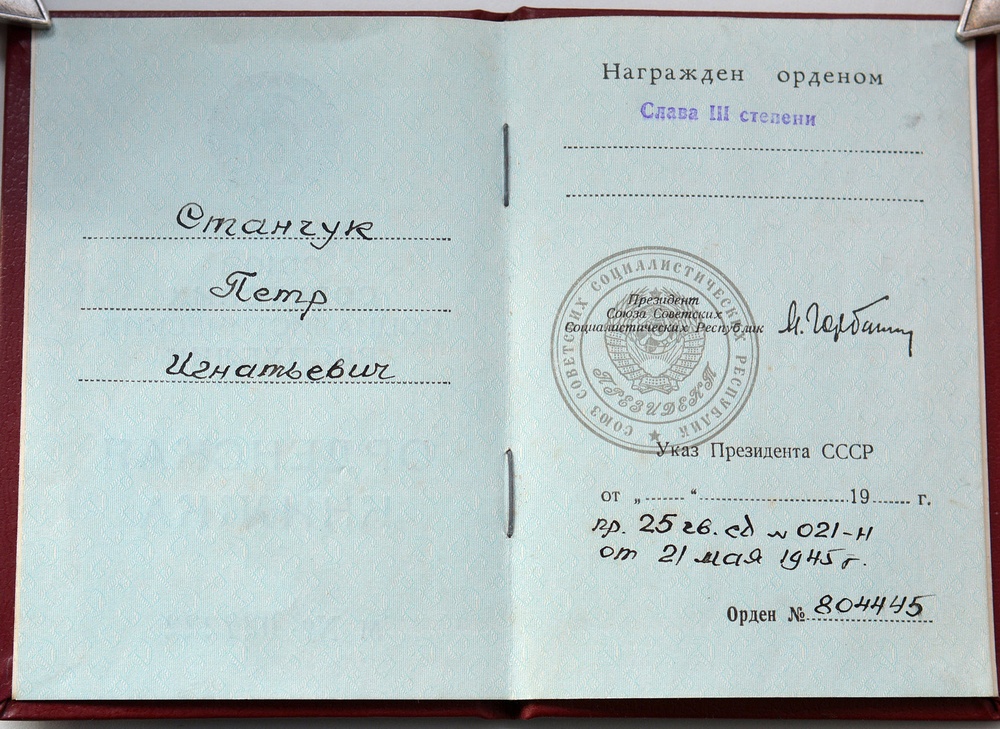 Станчук
Петр
Игнатьевич
Награжден орденом
Слава III степени
СОЮЗ СОВЕТСКИХ СОЦИАЛИСТИЧЕСКИХ РЕСПУБЛИК
ПРЕЗИДЕНТ
Президент
Союза Советских
Социалистических Республик
М. Горбачев
Указ Президента СССР
от „ “ 19 г.
пр. 25 гв. сд № 021-н
от 21 мая 1945 г.
Орден № 804445